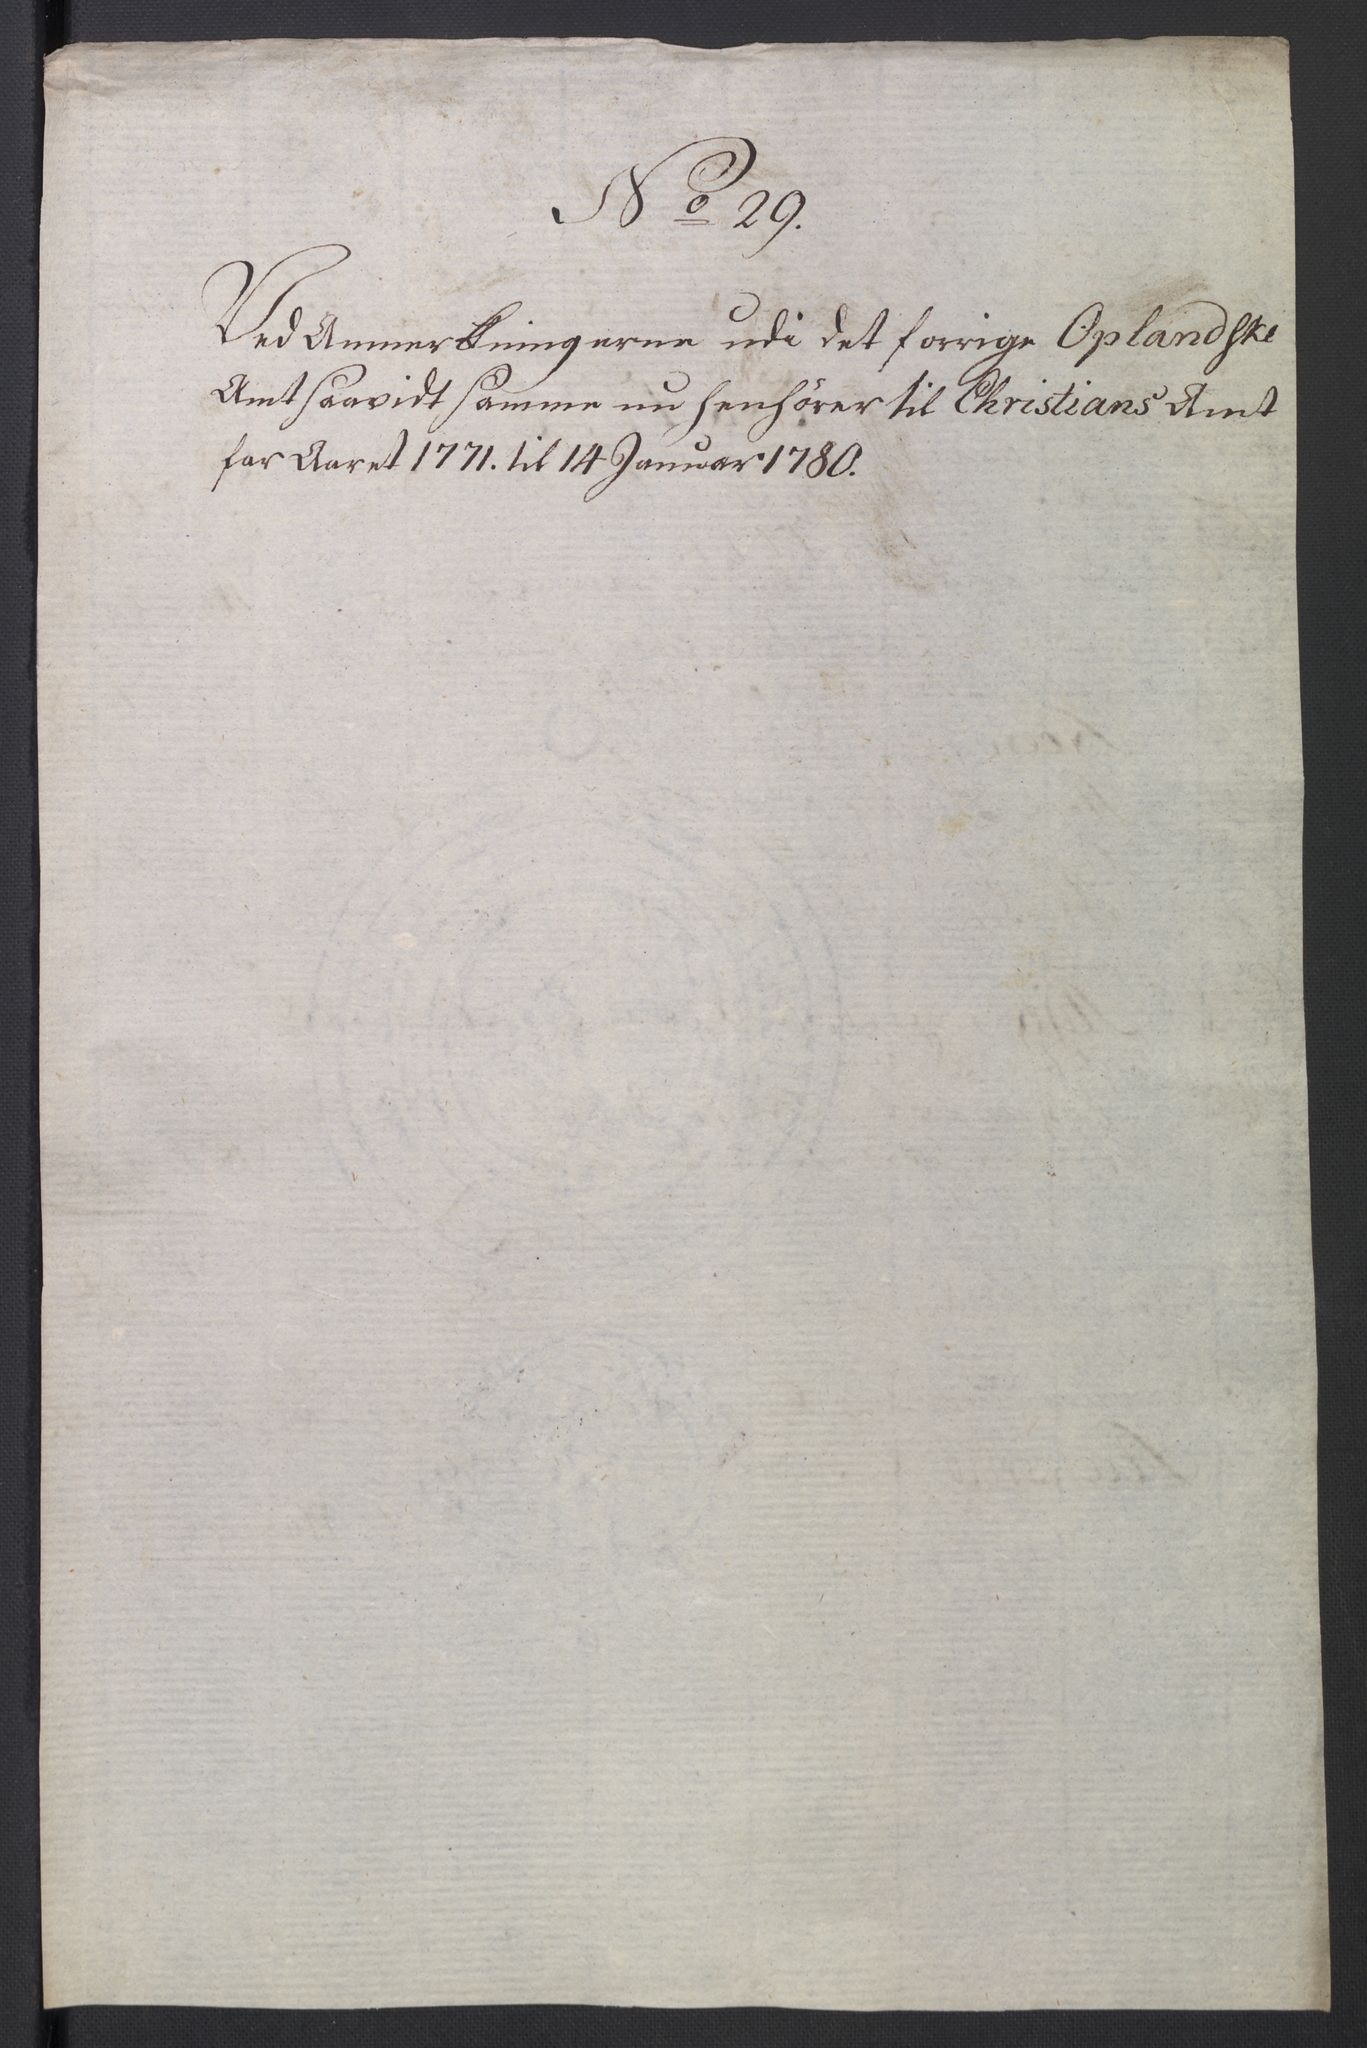 No 29.
Ved Anmerkningerne udi det forrige Oplandske
Amt saavidt samme nu henhörer til Christians Amt
for Aaret 1771. til 14 Januar 1780.